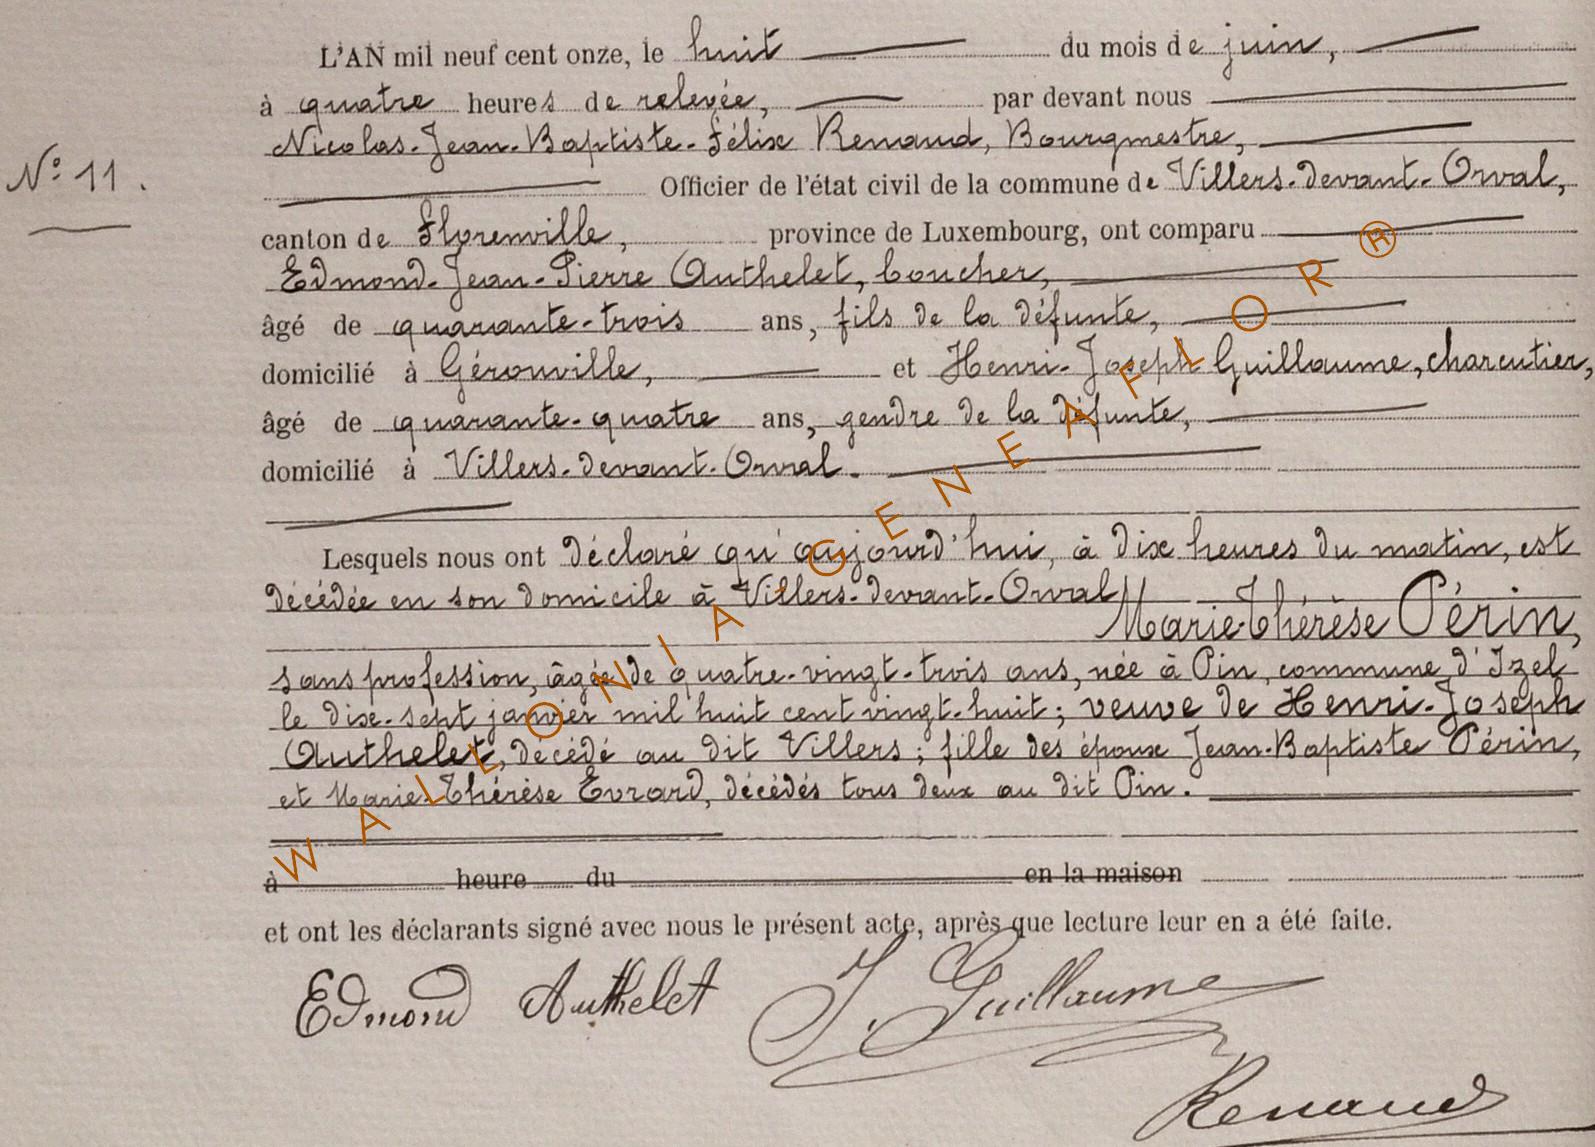 L'AN mil neuf cent onze, le huit du mois de juin,
à quatre heures de relevée, par devant nous
Nicolas-Jean-Baptiste-Félix Renaud, Bourgmestre,
N° 11.
Officier de l'état civil de la commune de Villers-devant-Orval,
canton de Florenville, province de Luxembourg, ont comparu
Edmond-Jean-Pierre Authelet, Coucher,
âgé de quarante-trois ans, fils de la défunte,
domicilié à Gérouville, et Henri-Joseph Guillaume, charcutier,
âgé de quarante-quatre ans, gendre de la défunte,
domicilié à Villers-devant-Orval.
Lesquels nous ont déclaré qu'aujourd'hui, à dix heures du matin, est
décédée en son domicile à Villers-devant-Orval
Marie-Thérèse Périn,
sans profession, âgée de quatre-vingt-trois ans, née à Pin, commune d'Izel
le dix-sept janvier mil huit cent vingt-huit; veuve de Henri-Joseph
Authelet, décédé au dit Villers; fille des époux Jean-Baptiste Périn,
et Marie-Thérèse Evrard, décédés tous deux au dit Pin.
à heure du en la maison
et ont les déclarants signé avec nous le présent acte, après que lecture leur en a été faite.
Edmond Authelet J. Guillaume
Renaud
WALLONIA-GENEAFLOR®